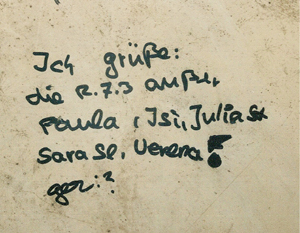 Ich grüße:
die R.7.3 außer
Paula, Isi, Julia St
Sara Sl, Verena!